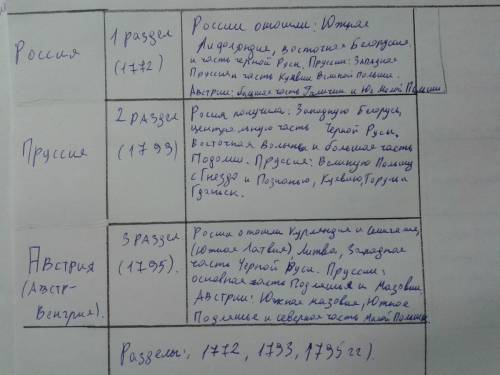 Россия
1 раздел
(1772)
России отошли: Южная
Лифляндия, восточная Белорусия
и часть Черной Руси. Пруссии: Западная
Пруссия и часть Куявии Великой Польши.
Австрии: большая часть Галиции и Юг Малой Польши
Пруссия
2 раздел
(1793)
Россия получила: Западную Белорус,
центральную часть Черной Руси,
Восточная Волынь и большая часть
Подолии. Пруссия: Великую Польшу
с Гнезда и Познанью, Куявию, Торунь и
Гданьск.
Австрия
(Австр-
Венгрия).
3 раздел
(1795).
России отошли Курляндия и Семигалия,
(Южная Латвия) Литва, Западная
часть Черной Руси. Пруссии:
основная часть Подлашья и Мазовии.
Австрии: Южная Мазовия, Южное
Подлашье и северная часть Малой Польши.
Разделы: 1772, 1793, 1795 гг).